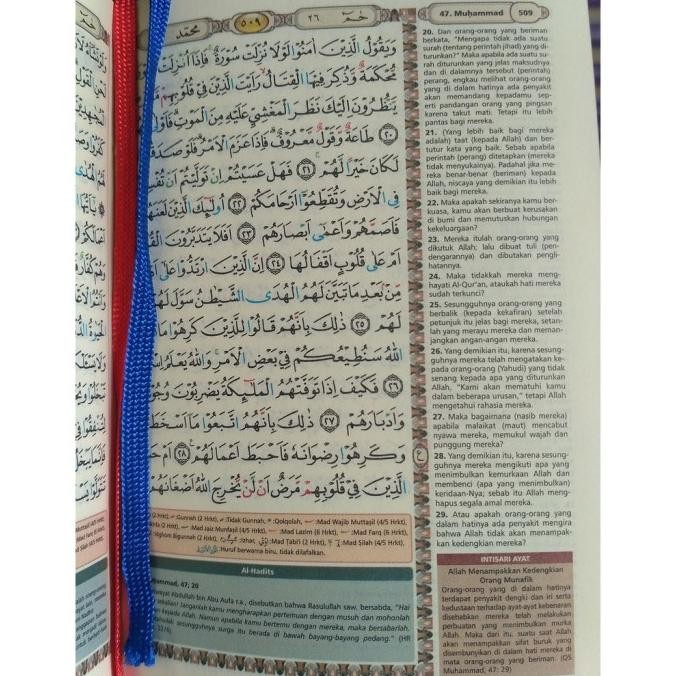 محمد
٥٠٩
٢٦
حم
47. Muhammad
509
وَيَقُولُ الَّذِينَ آمَنُوا لَوْلَا نُزِّلَتْ سُورَةٌ فَإِذَا أُنْزِلَتْ
مُحْكَمَةٌ وَذُكِرَ فِيهَا الْقِتَالُ رَأَيْتَ الَّذِينَ فِي قُلُوبِهِمْ
يَنْظُرُونَ إِلَيْكَ نَظَرَ الْمَغْشِيِّ عَلَيْهِ مِنَ الْمَوْتِ فَأَوْلَى
٢٠ طَاعَةٌ وَقَوْلٌ مَعْرُوفٌ فَإِذَا عَزَمَ الْأَمْرُ فَلَوْ صَدَقُوا
لَكَانَ خَيْرًا لَهُمْ ٢١ فَهَلْ عَسَيْتُمْ إِنْ تَوَلَّيْتُمْ أَنْ
فِي الْأَرْضِ وَتُقَطِّعُوا أَرْحَامَكُمْ ٢٢ أُولَئِكَ الَّذِينَ لَعَنَهُمُ
فَأَصَمَّهُمْ وَأَعْمَى أَبْصَارَهُمْ ٢٣ أَفَلَا يَتَدَبَّرُونَ
أَمْ عَلَى قُلُوبٍ أَقْفَالُهَا ٢٤ إِنَّ الَّذِينَ ارْتَدُّوا عَلَى
مِنْ بَعْدِ مَا تَبَيَّنَ لَهُمُ الْهُدَى الشَّيْطٰنُ سَوَّلَ لَهُمْ
لَهُمْ ٢٥ ذَلِكَ بِأَنَّهُمْ قَالُوا لِلَّذِينَ كَرِهُوا مَا
اللهُ سَنُطِيعُكُمْ فِي بَعْضِ الْأَمْرِ وَاللهُ يَعْلَمُ
٢٦ فَكَيْفَ إِذَا تَوَفَّتْهُمُ الْمَلٰئِكَةُ يَضْرِبُونَ
وَأَدْبَارَهُمْ ٢٧ ذَلِكَ بِأَنَّهُمُ اتَّبَعُوا مَا أَسْخَطَ
وَكَرِهُوا رِضْوَانَهُ فَأَحْبَطَ أَعْمَالَهُمْ ٢٨ أَمْ
الَّذِينَ فِي قُلُوبِهِمْ مَرَضٌ أَنْ لَنْ يُخْرِجَ اللهُ أَضْغَانَهُمْ
20. Dan orang-orang yang beriman
berkata, "Mengapa tidak ada suatu
surah (tentang perintah jihad) yang di-
turunkan?" Maka apabila ada suatu su-
rah diturunkan yang jelas maksudnya
dan di dalamnya tersebut (perintah)
perang, engkau melihat orang-orang
yang di dalam hatinya ada penyakit
akan memandang kepadamu sep-
erti pandangan orang yang pingsan
karena takut mati. Tetapi itu lebih
pantas bagi mereka.
21. (Yang lebih baik bagi mereka
adalah) taat (kepada Allah) dan ber-
tutur kata yang baik. Sebab apabila
perintah (perang) ditetapkan (mereka
tidak menyukainya). Padahal jika me-
reka benar-benar (beriman) kepada
Allah, niscaya yang demikian itu lebih
baik bagi mereka.
22. Maka apakah sekiranya kamu ber-
kuasa, kamu akan berbuat kerusakan
di bumi dan memutuskan hubungan
kekeluargaan?
23. Mereka itulah orang-orang yang
dikutuk Allah; lalu dibuat tuli (pen-
dengarannya) dan dibutakan pengli-
hatannya.
24. Maka tidakkah mereka meng-
hayati Al-Qur'an, ataukah hati mereka
sudah terkunci?
25. Sesungguhnya orang-orang yang
berbalik (kepada kekafiran) setelah
petunjuk itu jelas bagi mereka, setan-
lah yang merayu mereka dan meman-
jangkan angan-angan mereka.
26. Yang demikian itu, karena sesung-
guhnya mereka telah mengatakan ke-
pada orang-orang (Yahudi) yang tidak
senang kepada apa yang diturunkan
Allah, "Kami akan mematuhi kamu
dalam beberapa urusan," tetapi Allah
mengetahui rahasia mereka.
27. Maka bagaimana (nasib mereka)
apabila malaikat (maut) mencabut
nyawa mereka, memukul wajah dan
punggung mereka?
28. Yang demikian itu, karena sesung-
guhnya mereka mengikuti apa yang
menimbulkan kemurkaan Allah dan
membenci (apa yang menimbulkan)
keridaan-Nya; sebab itu Allah meng-
hapus segala amal mereka.
29. Atau apakah orang-orang yang
dalam hatinya ada penyakit mengira
bahwa Allah tidak akan menampak-
kan kedengkian mereka?
INTISARI AYAT
Allah Menampakkan Kedengkian
Orang Munafik
Orang-orang yang di dalam hatinya
terdapat penyakit dengki dan iri serta
kedustaan terhadap ayat-ayat kebenaran
disebabkan mereka telah melakukan
perbuatan yang menimbulkan murka
Allah. Maka dari itu, suatu saat Allah
akan menampakkan sifat buruk yang
disembunyikan di dalam hati mereka di
mata orang-orang yang beriman. (QS
Muhammad, 47: 29)
:Gunnah (2 Hrkt), :Tidak Gunnah, :Qolqolah, :Mad Wajib Muttaṣil (4/5 Hrkt),
:Mad Jaiz Munfaṣil (4/5 Hrkt), :Mad Lazim (6 Hrkt), :Mad Farq (6 Hrkt),
Bigunnah (2 Hrkt), :Mad Ṭabi'i (2 Hrkt), :Mad Ṣilah (4/5 Hrkt),
:Huruf berwarna biru, tidak dilafalkan.
Al-Hadits
Muhammad, 47: 20
Abdullah bin Abu Aufa r.a., disebutkan bahwa Rasulullah saw. bersabda, "Hai
sekalian! Janganlah kamu mengharapkan pertemuan dengan musuh dan mohonlah
kepada Allah. Namun apabila kamu bertemu dengan mereka, maka bersabarlah.
sesungguhnya surga itu berada di bawah bayang-bayang pedang." (HR